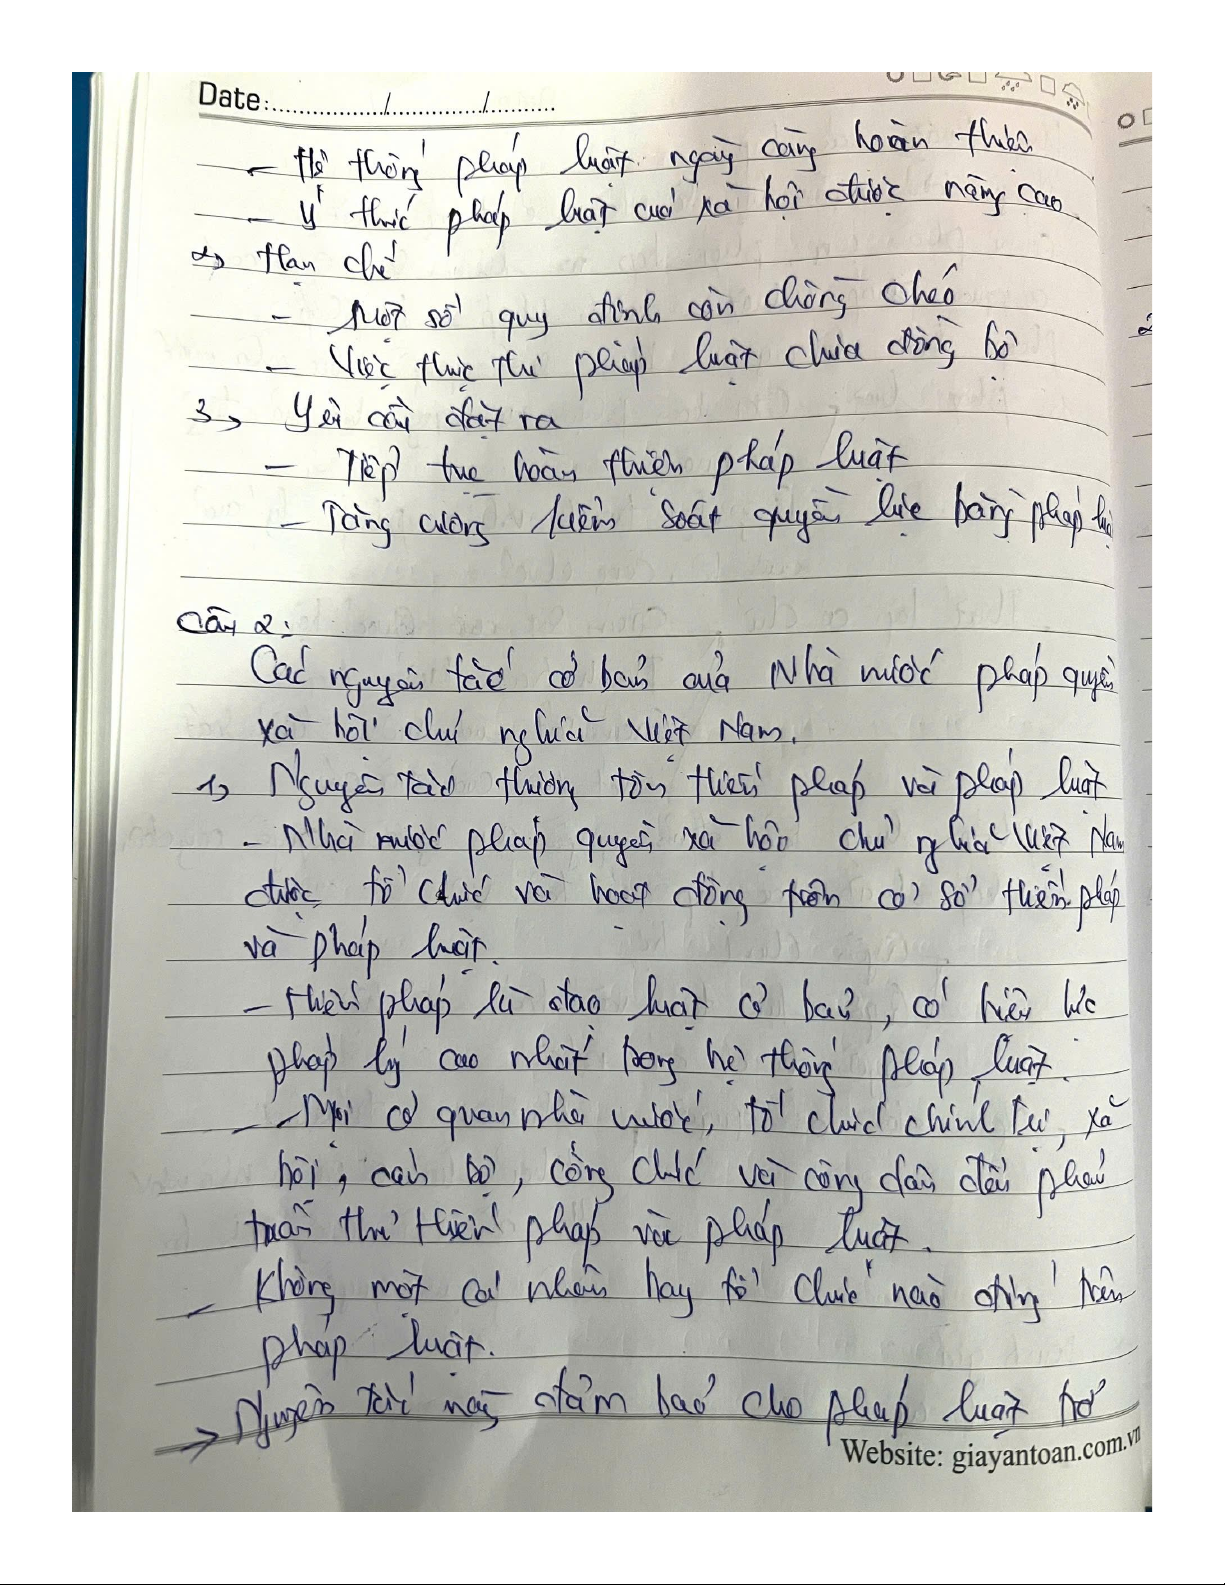 Date:............/............/............
- Hệ thống pháp luật ngày càng hoàn thiện
- Ý thức pháp luật của xã hội được nâng cao.
2, Hạn chế
- Một số quy định còn chồng chéo
- Việc thực thi pháp luật chưa đồng bộ
3, Yêu cầu đặt ra
- Tiếp tục hoàn thiện pháp luật
- Tăng cường kiểm soát quyền lực bằng pháp luật
Câu 2:
Các nguyên tắc cơ bản của Nhà nước pháp quyền
xã hội chủ nghĩa Việt Nam.
1, Nguyên tắc thượng tôn hiến pháp và pháp luật
- Nhà nước pháp quyền xã hội chủ nghĩa Việt Nam
được tổ chức và hoạt động trên cơ sở hiến pháp
và pháp luật.
- Hiến pháp là đạo luật cơ bản, có hiệu lực
pháp lý cao nhất trong hệ thống pháp luật.
- Mọi cơ quan nhà nước, tổ chức chính trị, xã
hội, cán bộ, công chức và công dân đều phải
tuân thủ Hiến pháp và pháp luật.
- Không một cá nhân hay tổ chức nào đứng trên
pháp luật.
→ Nguyên tắc này đảm bảo cho pháp luật trở
Website: giayantoan.com.vn